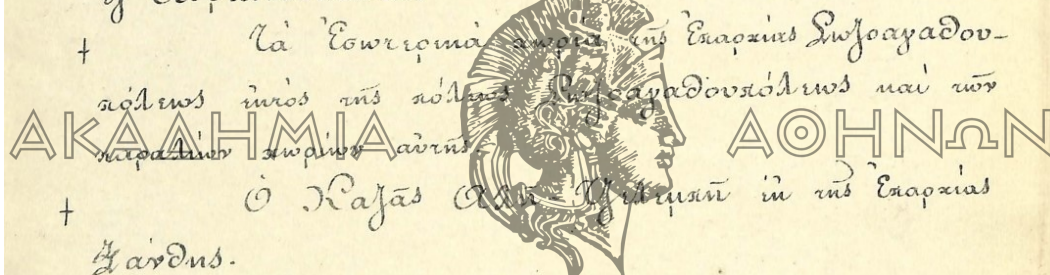 † Τὰ Ἐσωτερικὰ χωρία τῆς Ἐπαρχίας Σωζοαγαθου-
πόλεως ἐκτὸς τῆς πόλεως Σωζοαγαθουπόλεως καὶ τῶν
ΑΚΑΔΗΜΙΑ ΑΘΗΝΩΝ
παραλίων χωρίων αὐτῆς.
† Ὁ Καζᾶς Ἀχῆ Τζελεμπῆ ἐκ τῆς Ἐπαρχίας
Ξάνθης.